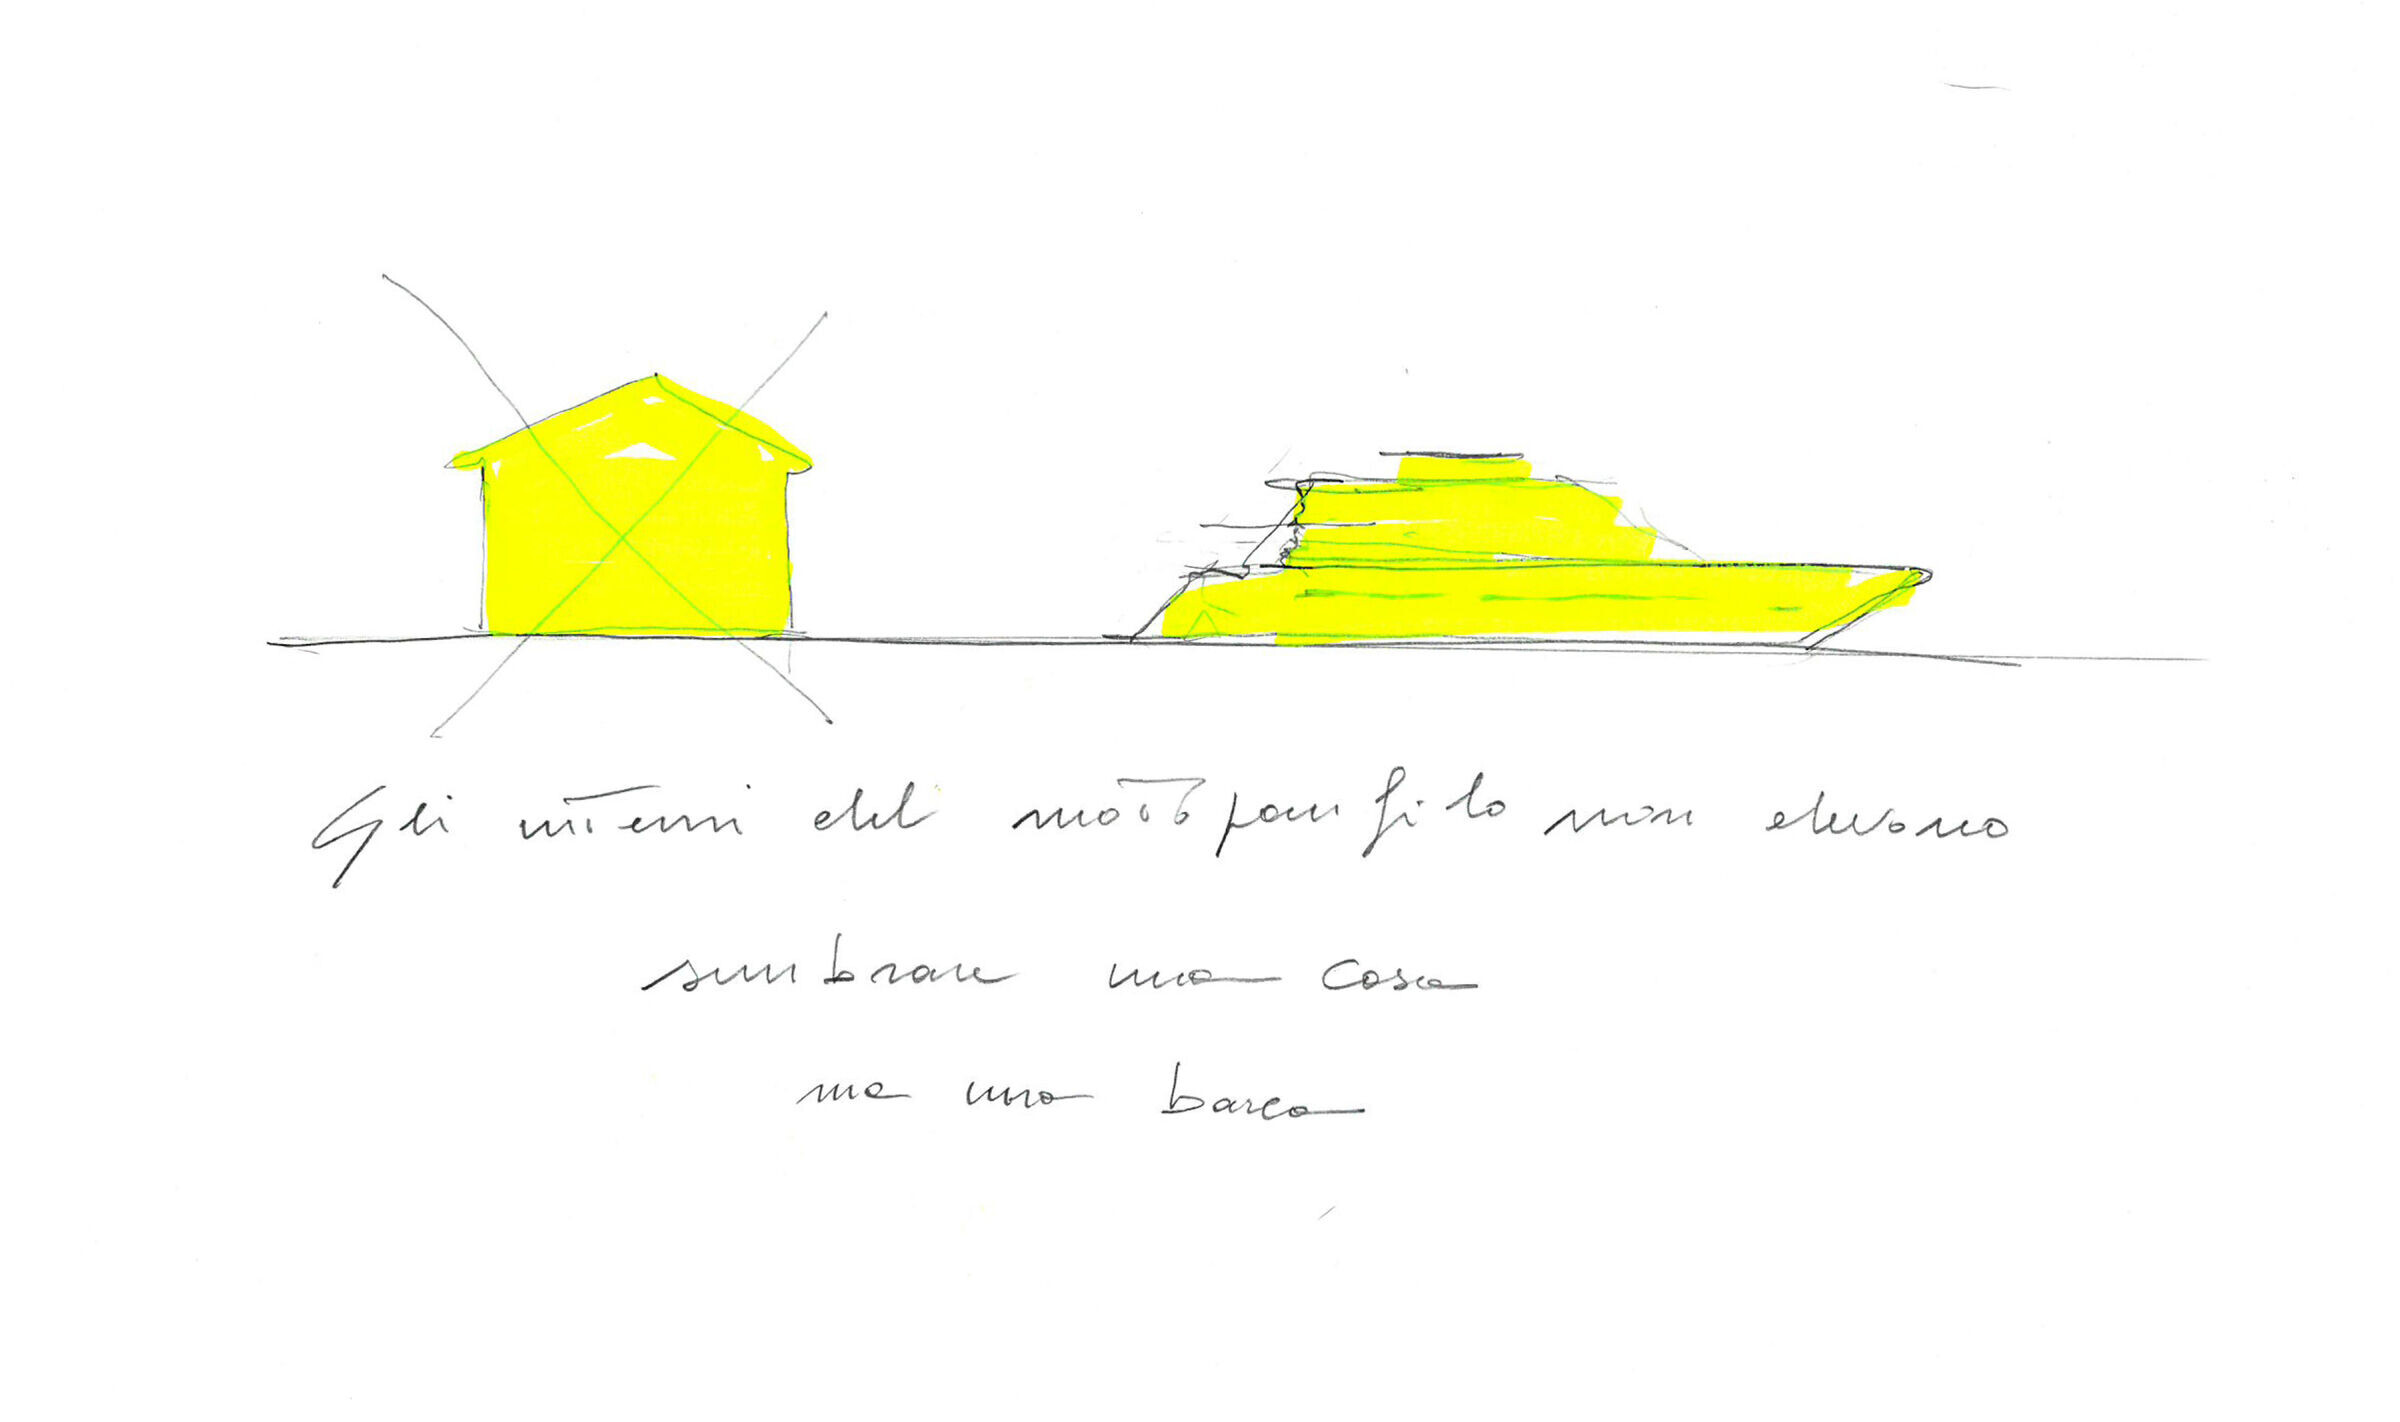 Gli interni del motopanfilo non devono
sembrare una casa
ma una barca